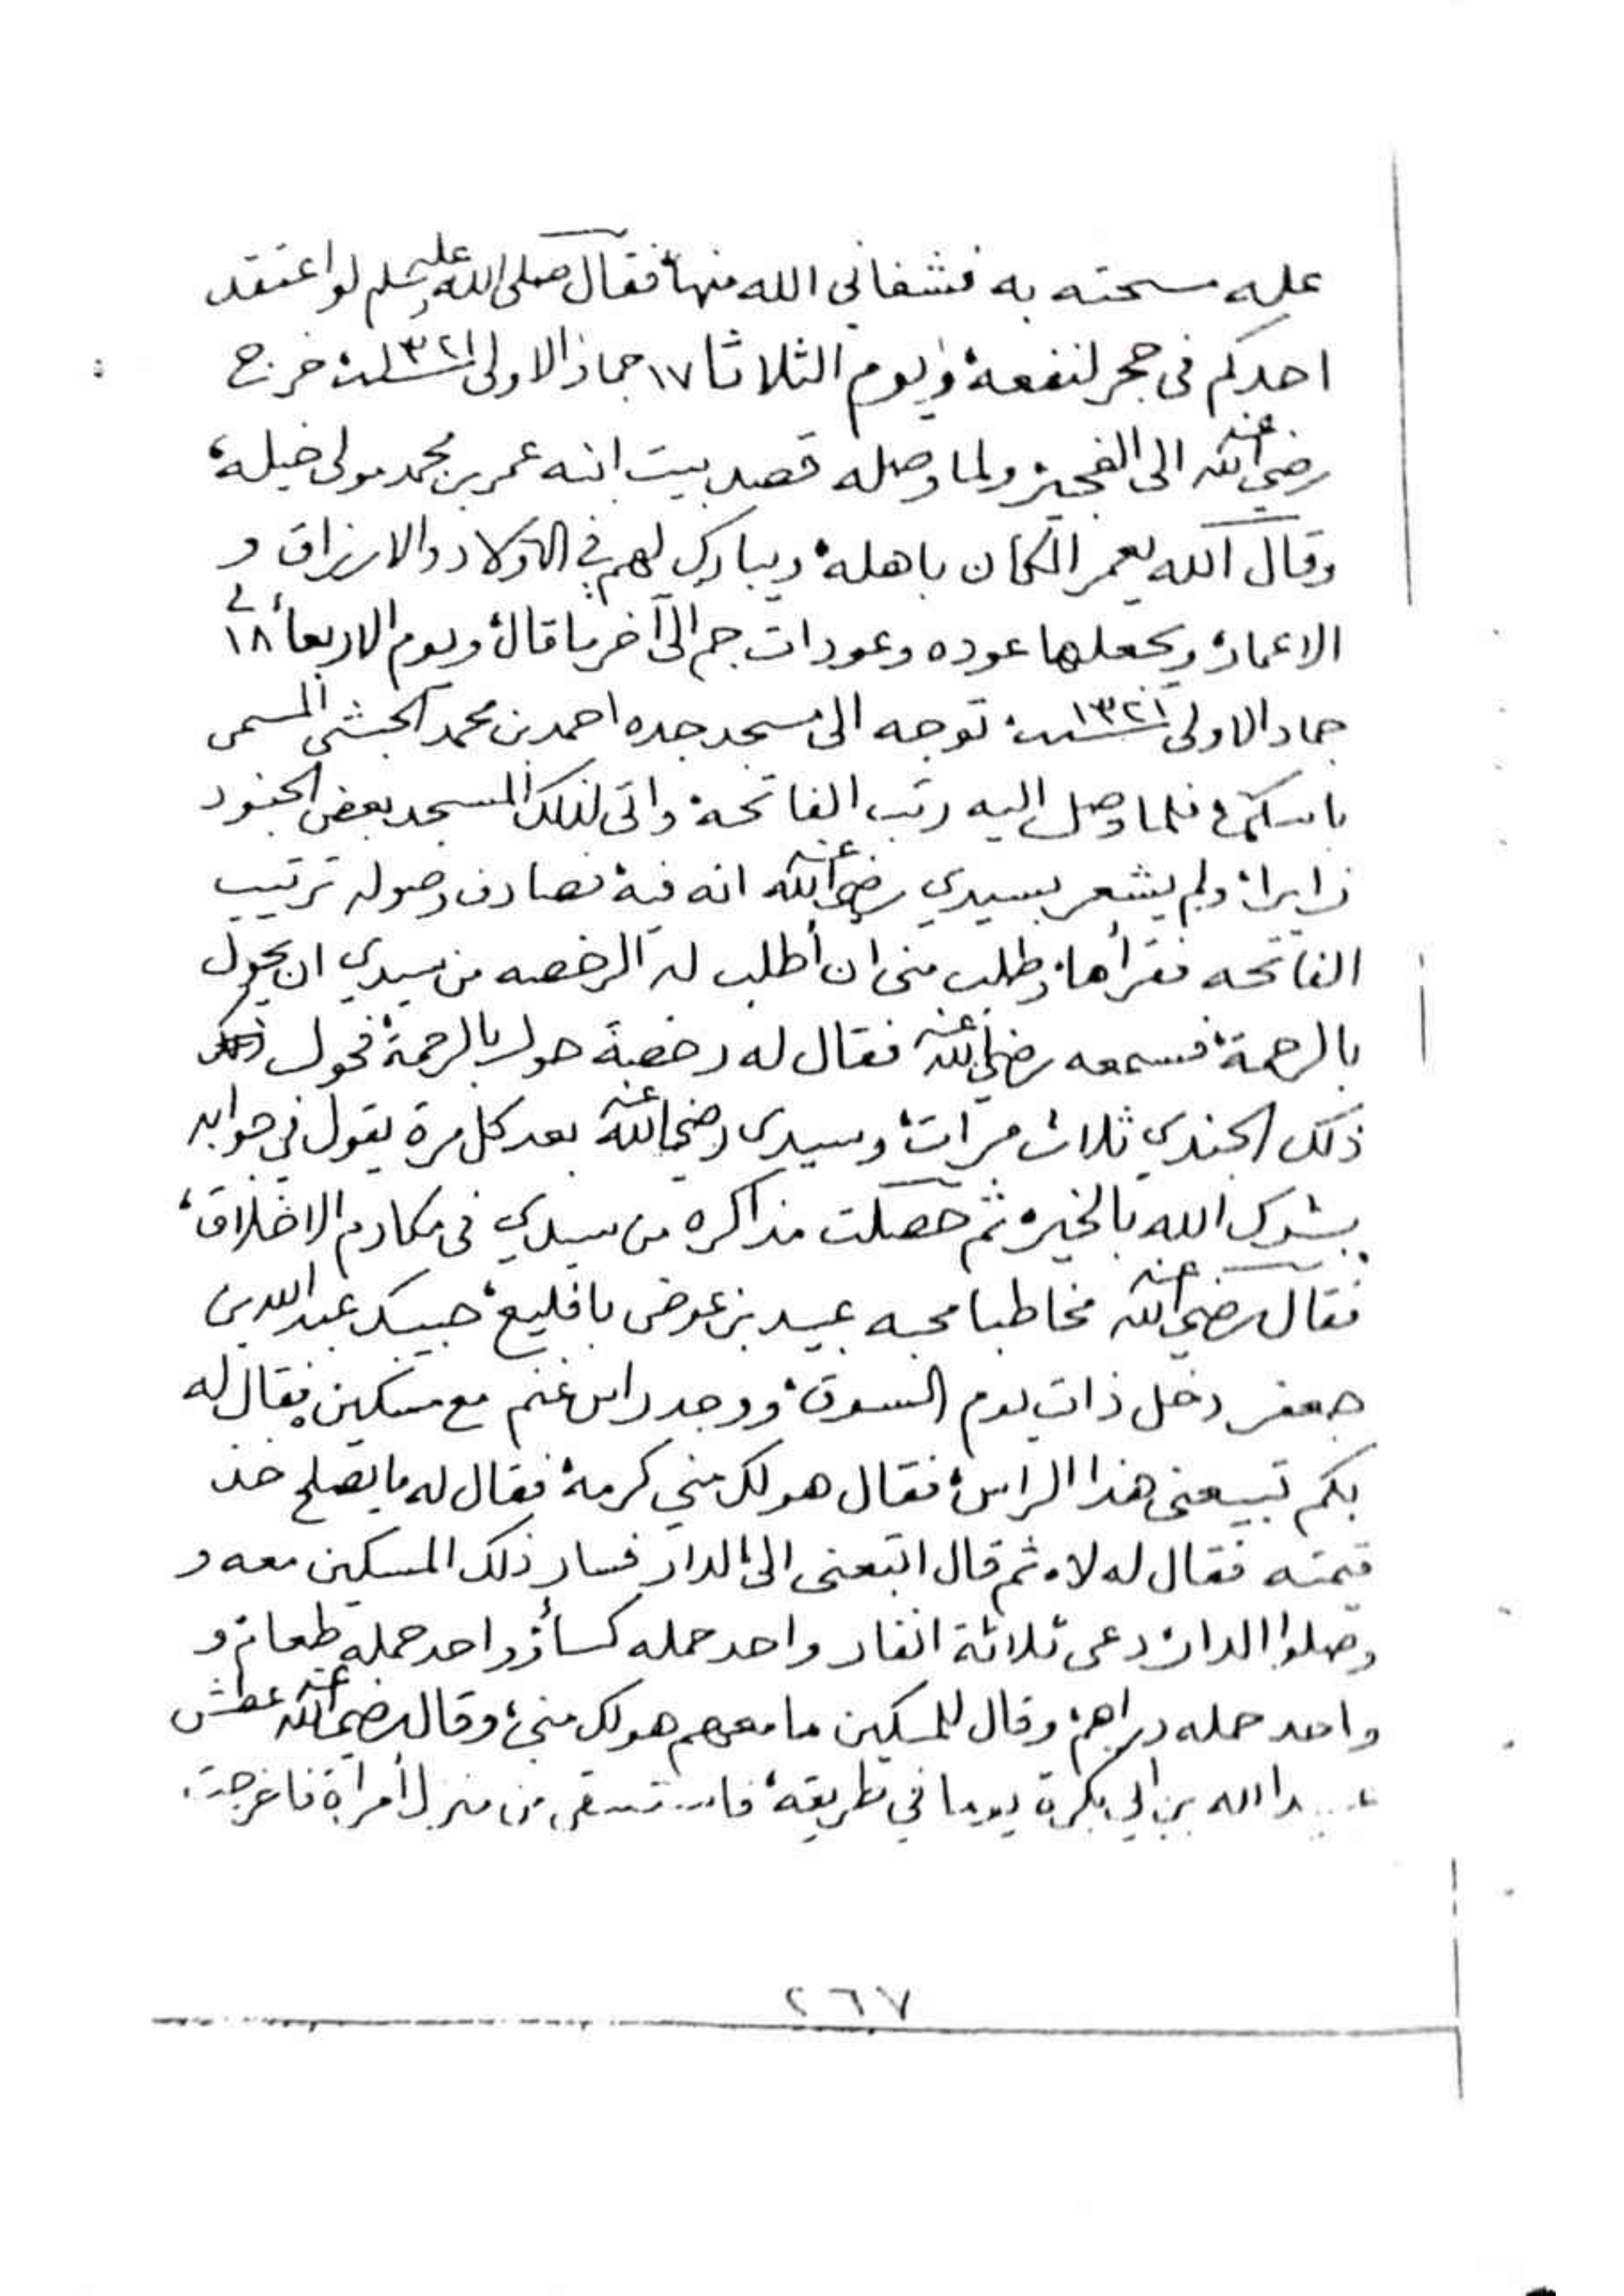 عله مسحته به فشفاني الله منها، فقال صلى الله عليه وسلم لو اعتقد
احدكم في حجر لنفعه، ويوم الثلاثا ١٧ جماد الاولى سنة ١٣٢١ خرج
رضي الله عنه الى الفجير ولما وصله قصد بيت ابنه عمر بن محمد مولى خيله،
وقال الله يعمر المكان باهله، ويبارك لهم في الاولاد والارزاق و
الاعمار، ويجعلها عوده وعودات جم الى آخر ما قال، ويوم الاربعاء ١٨ في
جماد الاولى سنة ١٣٢١ توجه الى مسجد جده احمد بن محمد الحبشي المسمى
فلما وصل اليه رتب الفاتحة، واتى لذلك المسجد بعض الجنود
زايرا، ولم يشعر بسيدي رضي الله عنه انه فيه، فصادف وصوله ترتيب
الفاتحه فقرأها، وطلب مني ان أطلب له الرخصه من سيدي ان يحول
بالرحمة، فسمعه رضي الله عنه فقال له رخصة حول بالرحمة، فحول
ذلك الجندي ثلاث مرات، وسيدي رضي الله عنه بعد كل مرة يقول في جوابه
بشرك الله بالخير، ثم حصلت مذاكره من سيدي في مكارم الاخلاق،
فقال رضي الله عنه مخاطبا محبه عبيد بن عوض بافليع، حبيبك عبد الله بن
جعفر دخل ذات يوم السوق، ووجد راس غنم مع مسكين، فقال له
بكم تبيعني هذا الراس، فقال هو لك مني كرمة، فقال له ما يصلح خذ
قيمته فقال له لا، ثم قال اتبعني الى الدار فسار ذلك المسكين معه و
وصلوا الدار، دعى ثلاثة انفار واحد حمله كساء، وواحد حمله طعام، و
واحد حمله دراهم، وقال للمسكين ما معهم هو لك مني، وقال رضي الله عنه عطش
عبد الله بن ابي بكرة يوما في طريقه، فاستسقى من منزل أمرأة فاخرجت
٢٦٧